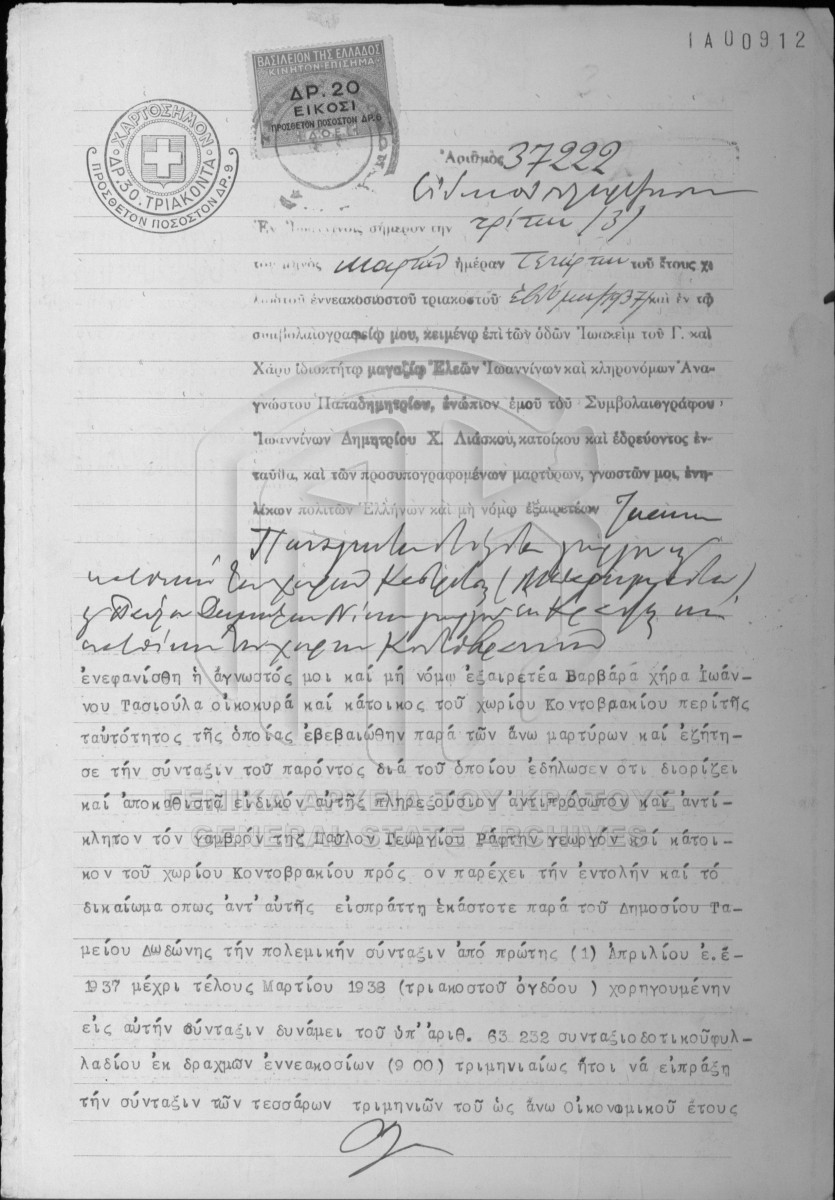 ΙΑ00912
ΒΑΣΙΛΕΙΟΝ ΤΗΣ ΕΛΛΑΔΟΣ
ΚΙΝΗΤΟΝ ΕΠΙΣΗΜΑ
ΔΡ. 20
ΕΙΚΟΣΙ
ΠΡΟΣΘΕΤΟΝ ΠΟΣΟΣΤΟΝ ΔΡ. 6
ΧΑΡΤΟΣΗΜΟΝ
ΔΡ. 30. ΤΡΙΑΚΟΝΤΑ
ΠΡΟΣΘΕΤΟΝ ΠΟΣΟΣΤΟΝ ΔΡ. 9
Ἀριθμὸς 37222
Ἐν Ἰωαννίνοις σήμερον τὴν τρίτην (3)
τοῦ μηνὸς Μαρτίου ἡμέραν Τετάρτην τοῦ ἔτους χι
λιοστοῦ ἐννεακοσιοστοῦ τριακοστοῦ ἑβδόμου (1937) καὶ ἐν τῷ
συμβολαιογραφείῳ μου, κειμένῳ ἐπὶ τῶν ὁδῶν Ἰωακεὶμ τοῦ Γ. καὶ
Χάου ἰδιοκτήτῳ μαγαζίῳ Ἐλεῶν Ἰωαννίνων καὶ κληρονόμων Ἀνα-
γνώστου Παπαδημητρίου, ἐνώπιον ἐμοῦ τοῦ Συμβολαιογράφου
Ἰωαννίνων Δημητρίου Χ. Λιάσκου, κατοίκου καὶ ἑδρεύοντος ἐν-
ταῦθα, καὶ τῶν προσυπογραφομένων μαρτύρων, γνωστῶν μοι, ἐνη-
λίκων πολιτῶν Ἑλλήνων καὶ μὴ νόμῳ ἐξαιρετέων
ἐνεφανίσθη ἡ ἄγνωστός μοι καί μή νόμῳ ἐξαιρετέα Βαρβάρα χήρα Ἰωάν-
νου Τασιούλα οἰκοκυρά καί κάτοικος τοῦ χωρίου Κοντοβρακίου περίτῆς
ταὐτότητος τῆς ὁποίας ἐβεβαιώθην παρά τῶν ἄνω μαρτύρων καί ἐζήτη-
σε τήν σύνταξιν τοῦ παρόντος διά τοῦ ὁποίου ἐδήλωσεν ὅτι διορίζει
καί ἀποκαθιστᾶ εἰδικόν αὐτῆς πληρεξούσιον ἀντιπρόσωπον καί ἀντί-
ΓΕΝΙΚΑ ΑΡΧΕΙΑ ΤΟΥ ΚΡΑΤΟΥΣ
GENERAL STATE ARCHIVES
κλητον τόν γαμβρόν της Παῦλον Γεωργίου Ράφτην γεωργόν καί κάτοι-
κον τοῦ χωρίου Κοντοβρακίου πρός ον παρέχει τήν ἐντολήν καί τό
δικαίωμα οπως ἀντ'αὐτῆς εἰσπράττῃ ἑκάστοτε παρά τοῦ Δημοσίου Τα-
μείου Δωδώνης τήν πολεμικήν σύνταξιν ἀπό πρώτης (1) Ἀπριλίου ἐ.ἔ
1937 μέχρι τέλους Μαρτίου 1938 (τριακοστοῦ ὀγδόου ) χορηγουμένην
εἰς αὐτήν σύνταξιν δυνάμει τοῦ ὑπ'ἀριθ. 63 232 συνταξιοδοτικοῦφυλ-
λαδίου ἐκ δραχμῶν ἐννεακοσίων (9 00) τριμηνιαίως ἤτοι νά εἰπράξῃ
τήν σύνταξιν τῶν τεσσάρων τριμηνιῶν τοῦ ὡς ἄνω Οἰκονομικοῦ ἔτους